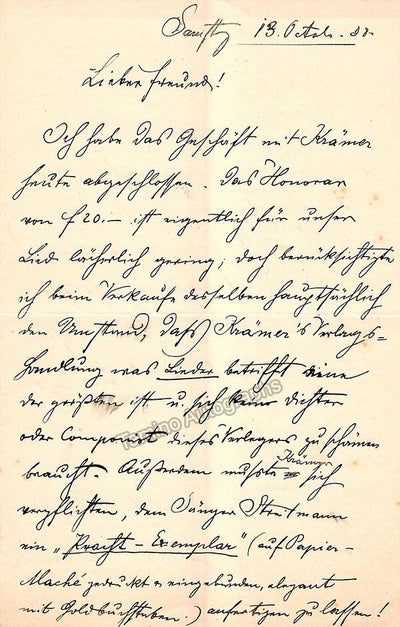 Samstg 13. Octob. 88.
Lieber Freund!
Ich habe das Geschäft mit Krämer
heute abgeschlossen. Das Honorar
von f 20.– ist eigentlich für unser
Lied lächerlich gering; doch berücksichtigte
ich beim Verkaufe desselben hauptsächlich
den Umstand, daß Krämer's Verlags-
handlung was Lieder betrifft eine
der größten ist u. sich kein Dichter
oder Componist dieses Verlegers zu schämen
braucht. Außerdem mußte Krämer sich
verpflichten, dem Sänger Streitmann
ein „Pracht-Exemplar" (auf Papier-
Maché gedruckt & eingebunden, elegant
mit Goldbuchstaben.) anfertigen zu lassen!
Tamino Autographs